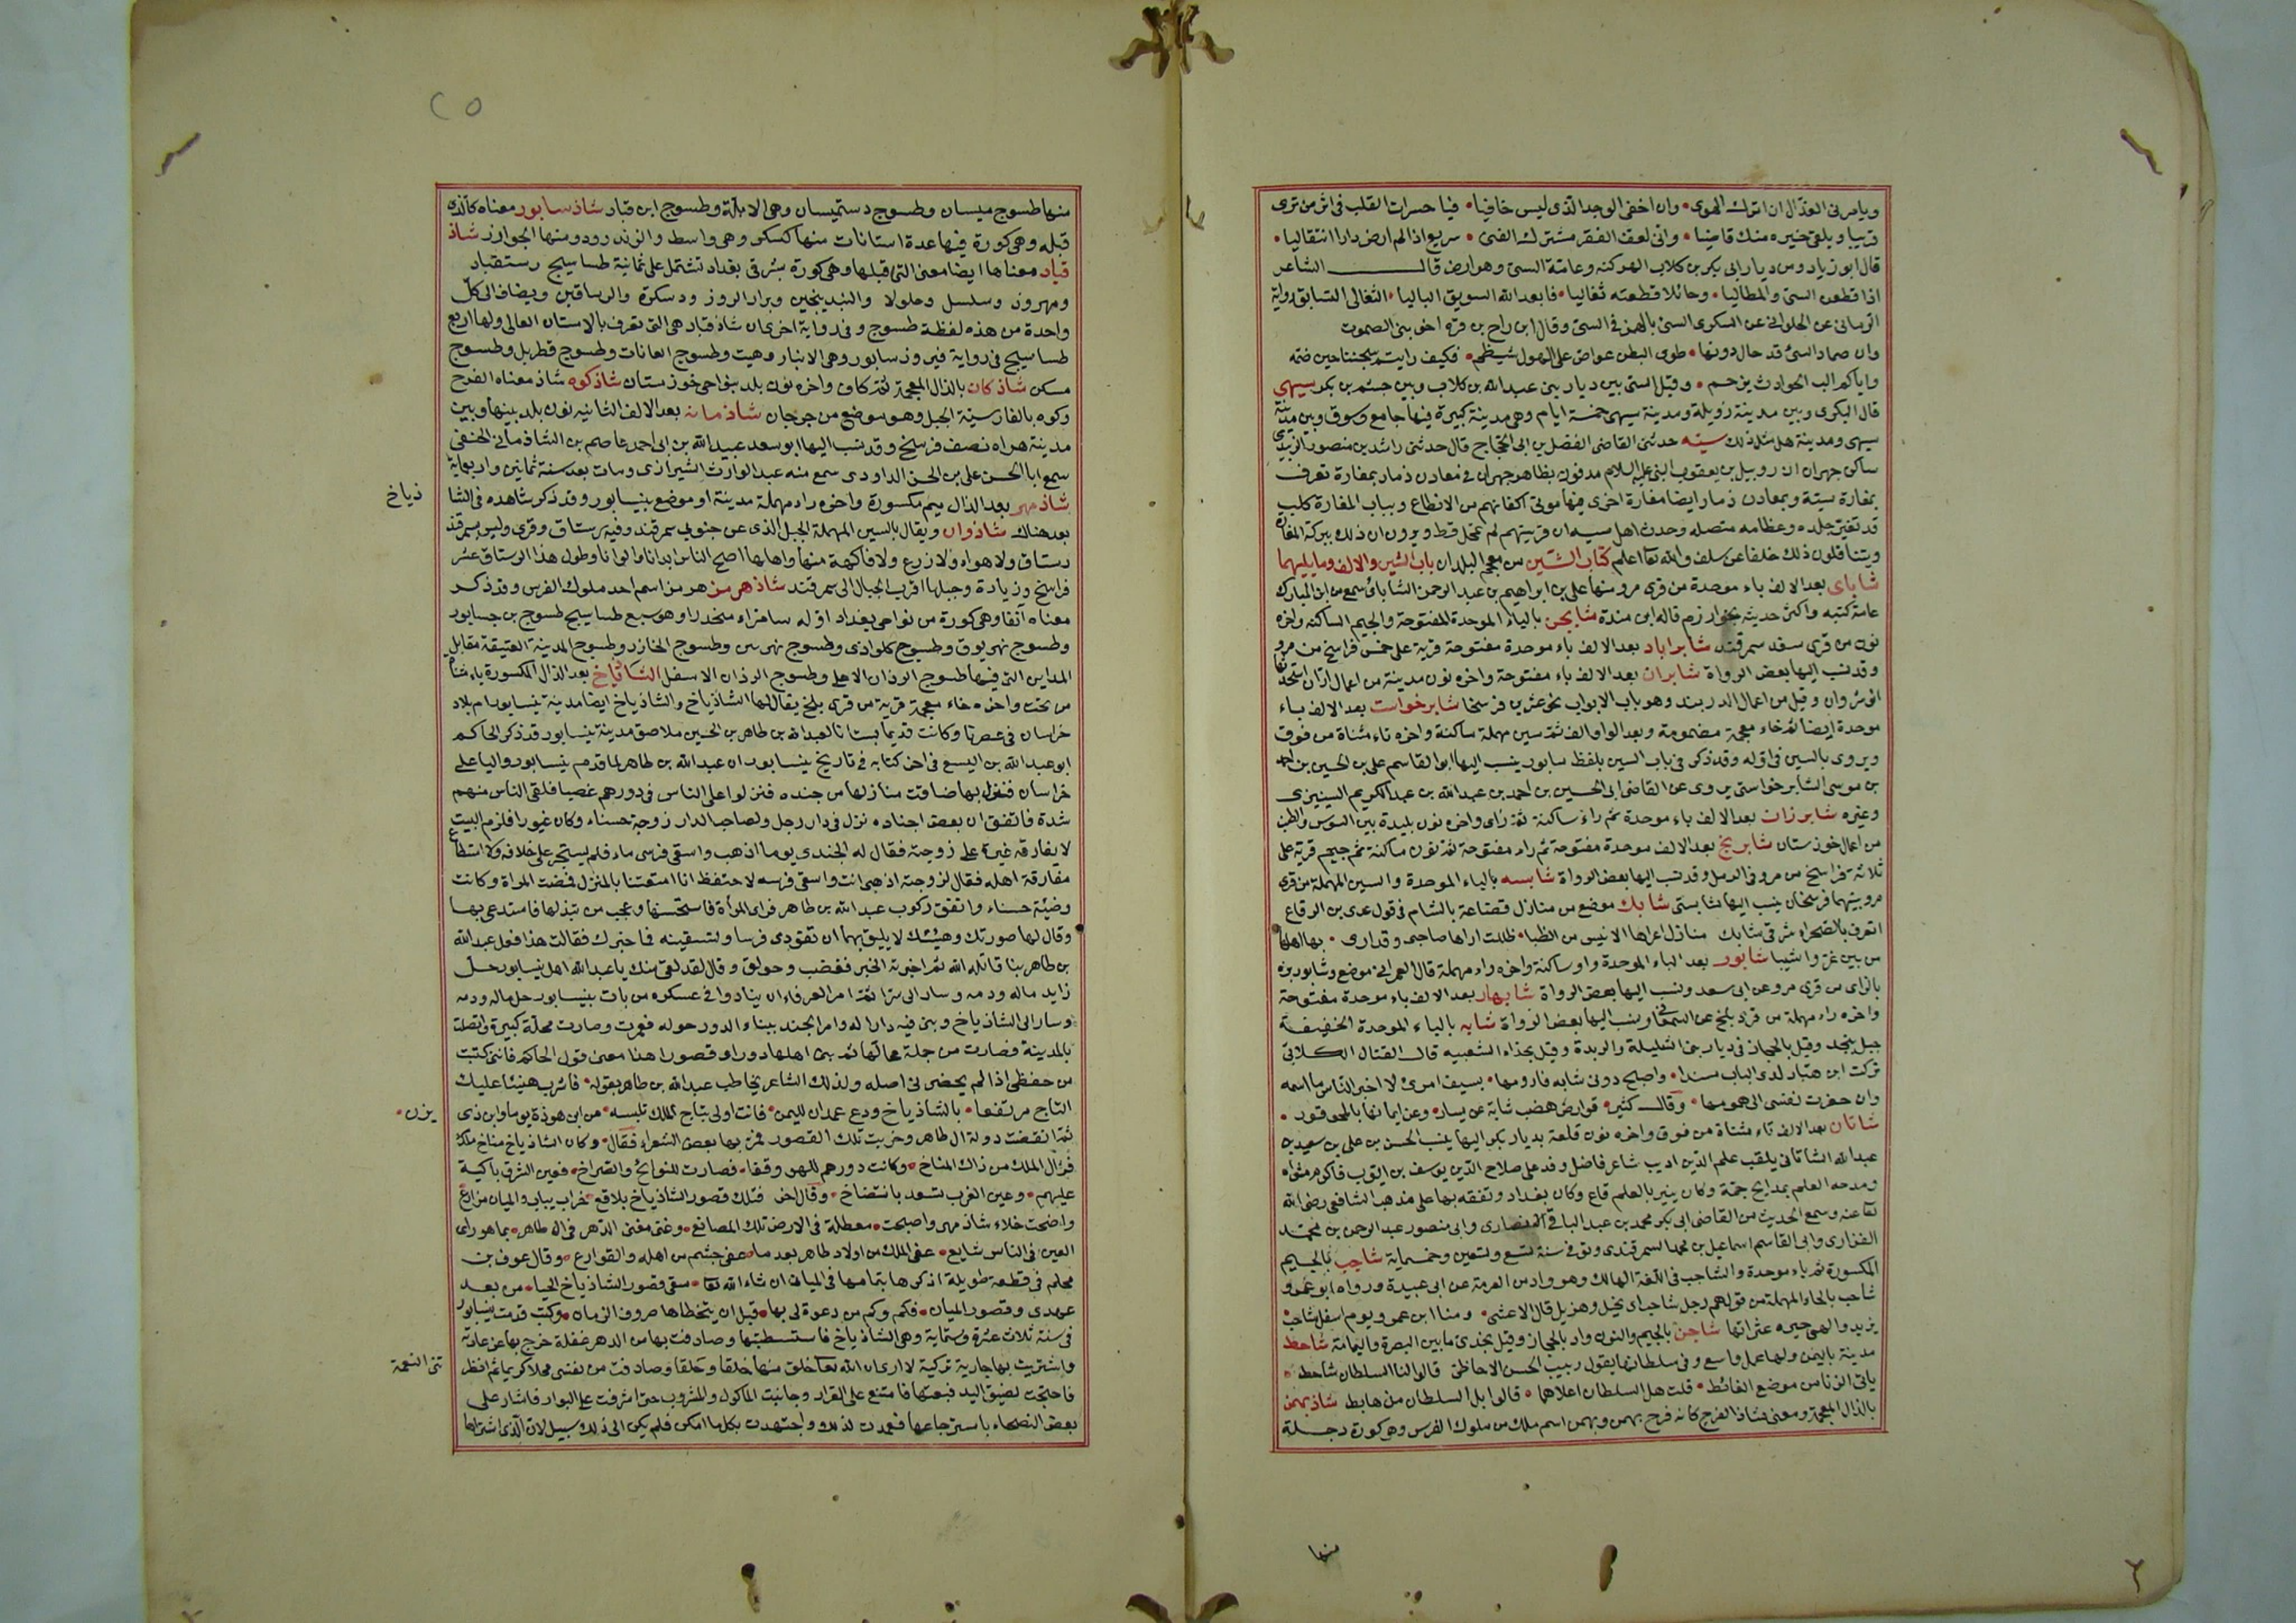 ويامرني العذال ان اترك الهوى • وان اخفي الوجد الذي ليس خافيا • فيا حسرات القلب في اثر من ترى
قريبا ويلقى خيره منك قاصيا • واني لعف الفقر مشترك الغنى • سريع اذا لم ارض دارا انتقاليا •
قال ابو زياد ومن ديار ابي بكر بن كلاب الهركنه وعامة السيّ وهو ارض قال الشاعر
اذا قطعن السيّ والمطاليا • وحائلا قطعنه تغاليا • فابعد الله السويق الباليا • التغالي التسابق رواية
الرماني عن الحلواني عن السكري السيئ بالهمز في السيّ وقال ابن راح بن قرة اخو بني الصموت
وان عماد السيّ قد حال دونها • طوى البطن عواص على الهول شيظم • فكيف رايتم شيخنا حين ضمه
واياكم الب الحوادث يزحم • وقيل السيّ بين ديار بني عبد الله بن كلاب وبين جشم بن بكر سيهى
قال البكرى وبين مدينة زويلة ومدينة سيهى خمسة ايام وهي مدينة كبيرة فيها جامع وسوق وبين مدينة
سيهى ومدينة هل مثل ذلك سيّه حدثني القاضي المفضل بن ابي الحجاج قال حدثني راشد بن منصور الزبيدي
ساكن جهران ان روبيل بن يعقوب النبي عليه السلام مدفون بظاهر جهران في معادن ذمار بمغارة تعرف
بمغارة سيّة وبمعادن ذمار ايضا مغارة اخرى فيها موتى اكفانهم من الانطاع وبباب المغارة كلب
قد تغير جلده وعظامه متصله وحدث اهل سيه ان قريتهم لم تمحل قط ويرون ان ذلك ببركة المغارة
ويتناقلون ذلك خلفا عن سلف والله تعا اعلم كتاب الشين من معجم البلدان باب الشين والالف وما يليهما
شاباى بعد الالف باء موحدة من قرى مرو منها علي بن ابراهيم بن عبد الرحمن الشاباي سمع من ابن المبارك
عامة كتبه واكثر حديثه بخوارزم قاله ابن مندة شابجن بالباء الموحدة المفتوحة والجيم الساكنة واخره
نون من قرى سغد سمرقند شابراباد بعد الالف باء موحدة مفتوحة قرية على خمس فراسخ من مرو
وقد نسب اليها بعض الرواة شابران بعد الالف باء مفتوحة واخره نون مدينة من اعمال اران استحدثها
انوشروان وقيل من اعمال الدربند وهو باب الابواب نحو عشرين فرسخا شابرخواست بعد الالف باء
موحدة ايضا ثم خاء معجمة مضمومة وبعد الواو الف ثم سين مهملة ساكنة واخره تاء مثناة من فوق
ويروى بالسين في اوله وقد ذكر في باب السين بلفظ سابور ينسب اليها ابو القاسم علي بن الحسين بن احمد
بن موسى الشابرخواستي يروى عن القاضي ابي الحسين بن احمد بن عبد الله بن عبد الكريم السينيزى
وغيره شابرزان بعد الالف باء موحدة ثم راء ساكنة ثم زاى واخره نون بليدة بين السوس والطيب
من اعمال خوزستان شابرنج بعد الالف موحدة مفتوحة ثم راء مفتوحة ثم نون ساكنة ثم جيم قرية على
ثلاثة فراسخ من مرو في الرمل وقد نسب اليها بعض الرواة شابسه بالباء الموحدة والسين المهملة من قرى
مرو بينهما فرسخان ينسب اليها شابستى شابك موضع من منازل قضاعة بالشام في قول عدى بن الرقاع
اتعرف بالصحراء شرقي شابك منازل غزلانها الانيس من الظبا • ظللت اراها صاحبي وقد ارى • بها اهلها
من بين غر واشيبا شابور بعد الباء الموحدة واو ساكنة واخره راء مهملة قال العمراني موضع وشابور بزه
بالزاى من قرى مرو عن ابي سعد ونسب اليها بعض الرواة شابهار بعد الالف باء موحدة مفتوحة
واخره راء مهملة من قرى بلخ عن السمعاني وينسب اليها بعض الرواة شابه بالباء الموحدة الخفيفة
جبل بنجد وقيل بالحجاز في ديار بني السليلة والربدة وقيل بحذاء الشعبيه قال القتال الكلابي
تركت ابن هبار لدى الباب مسندا • واصبح دوني شابه فاروىها • بسيف امرئ لا اخبر الناس ما اسمه
وان حقرت نفسي الي همومها • وقال كثير • قوارض هضب شابة عن يسار • وعن ايمانها بالمحو قور •
شاتان بعد الالف تاء مثناة من فوق واخره نون قلعة بديار بكر اليها ينسب الحسن بن علي بن سعيد بن
عبد الله الشاتاني يلقب علم الدين اديب شاعر فاضل وفد على صلاح الدين يوسف بن ايوب فاكرم مثواه
ومدحه العلم بمدايح جمة وكان ينير بالعلم قاع وكان بغداد وتفقه بها على مذهب الشافعي رضي الله
تعا عنه وسمع الحديث من القاضي ابي بكر محمد بن عبد الباقي الانصارى وابي منصور عبد الرحمن بن محمد
الفزارى وابي القاسم اسماعيل بن محمد السمرقندى وتوفي سنة تسع وتسعين وخمسماية شاجب بالجيم
المكسورة ثم باء موحدة والشاجب في اللغة الهالك وهو واد من العرمة عن ابي عبيدة ورواه ابو عمرو
شاحب بالحاء المهملة من قولهم رجل شاحب اى نحيل وهزيل قال الاعشى • ومنا ابن عمرو يوم اسفل شاحب
يزيد والهى خيره عثراتها شاجن بالجيم والنون واد بالحجاز وقيل نجدى ما بين البصرة واليمامة شاحط
مدينة باليمن ولها عمل واسع وفي سلطانها يقول رجب الحسن الاحاظى قالوا لنا السلطان شاحط •
ياتي الزناس موضع الغائط • قلت هل السلطان اعلاهما • قالوا بل السلطان من هابط شاذبهمن
بالذال المعجمة ومعنى شاذ الفرح كانه فرح بهمن وبهمن اسم ملك من ملوك الفرس وهي كورة دجلة
منها
٢٥
منها طسوج ميسان وطسوج دستميسان وهي الابلة وطسوج ابن قباد شاذسابور معناه كالذى
قبله وهي كورة فيها عدة استانات منها كسكر وهي واسط والزندرود ومنها الجوازر شاذ
قباد معناها ايضا معنى التي قبلها وهي كورة بشرقي بغداد تشتمل على ثمانية طساسيج رستقباد
ومهروز وسلسل وجلولا والبنديجين وبراز الروز ودسكرة والرساقين ويضاف الى كل
واحدة من هذه لفظة طسوج وفي رواية اخرى ان شاذ قباد هي التي تعرف بالاستان العالى ولها اربع
طساسيج في رواية فيروز سابور وهي الانبار وهيت وطسوج العانات وطسوج قطربل وطسوج
مسكن شاذكان بالذال المعجمة ثم كاف واخره نون بلد بنواحى خوزستان شاذكوه شاذ معناه الفرح
وكوه بالفارسية الجبل وهو موضع من جرجان شاذمانه بعد الالف الثانيه نون بلد بينها وبين
مدينة هراه نصف فرسخ وقد نسب اليها ابو سعد عبيد الله بن ابي احمد عاصم بن الشاذماني الحنفي
سمع ابا الحسن علي بن الحسن الداودى سمع منه عبد الوارث الشيرازى ومات بعد سنة ثمانين واربعماية
شاذمهر بعد الذال ميم مكسورة واخره راء مهملة مدينة او موضع بنيسابور وقد ذكر شاهده في الشا
ذياخ
بعد هناك شاذوان ويقال بالسين المهملة الجبل الذى عن جنوبي سمرقند وفيه رستاق وقرى وليس بسمرقند
رستاق ولا هواه ولا زرع ولا فاكهة منها واهلها اصح الناس ابدانا والوانا وطول هذا الرستاق عشر
فراسخ وزيادة وجبلها اقرب الجبال الى سمرقند شاذهرمز هرمز اسم احد ملوك الفرس وقد ذكر
معناه آنفا وهي كورة من نواحى بغداد اوله سامرا منحدرا وهو سبع طساسيج طسوج بزرجسابور
وطسوج نهربوق وطسوج كلواذى وطسوج نهربين وطسوج الجازر وطسوج المدينة العتيقة مقابل
المداين التي فيها طسوج الرذان الاعلى وطسوج الرذان الاسفل الشاذياخ بعد الذال المكسورة ياء مثناة
من تحت واخره خاء معجمة قرية من قرى بلخ يقال لها الشاذياخ والشاذياخ ايضا مدينة نيسابور ام بلاد
خراسان في عصرنا وكانت قديما بستانا لعبد الله بن طاهر بن الحسين ملاصق مدينة نيسابور فذكر الحاكم
ابو عبد الله بن البيع في اخر كتابه في تاريخ نيسابور ان عبد الله بن طاهر لما قدم نيسابور واليا على
خراسان فنزل بها ضاقت منازلها من جنده فنزلوا على الناس في دورهم غصبا فلقى الناس منهم
شدة فاتفق ان بعض اجناده نزل في دار رجل ولصاحب الدار زوجة حسناء وكان غيورا فلزم البيت
لا يفارقه غيرة على زوجته فقال له الجندى يوما اذهب واسقى فرسى ماء فلم يستجر على خلافه ولا استطاع
مفارقة اهله فقال لزوجته اذهبي انت واسقى فرسه لاحتفظ انا امتعتنا بالمنزل فمضت المراة وكانت
وضيئة حسناء واتفق ركوب عبد الله بن طاهر فراى المرأة فاستحسنها وعجب من تبذلها فاستدعى بها
وقال لها صورتك وهيئتك لا يليق بهما ان تقودى فرسا وتسقينه فما خبرك فقالت هذا فعل عبد الله
بن طاهر بنا قاتله الله ثم اخبرته الخبر فغضب وحولق وقال لقد لقي منك يا عبد الله اهل نيسابور حل
زايد ماله ودمه وسار الى شرا ثم امر العرفاء ان ينادوا في عسكره من بات بنيسابور حل ماله ودمه
وسار الى الشاذياخ وبنى فيه دارا له وامر الجند ببناء الدور حوله فعمرت وصارت محلة كبيرة واتصلت
بالمدينة فصارت من جملة محالها ثم بنى اهلها دورا وقصورا هذا معنى قول الحاكم فانني كتبت
من حفظى اذا لم يحضرني اصله ولذلك الشاعر يخاطب عبد الله بن طاهر بقوله • فاشرب هنيئا عليك
التاج مرتفعا • بالشاذياخ ودع غمدان لليمن • فانت اولى بتاج الملك تلبسه • من ابن هوذة يوما وابن ذى
يزن •
ثم انقضت دولة ال طاهر وخربت تلك القصور فمر بها بعض الشعراء فقال • وكان الشاذياخ مناخ ملك
فزال الملك من ذاك المناخ • وكانت دورهم للهو وقفا • فصارت للنوائح والصراخ • فعين الشرق باكية
عليهم • وعين الغرب تسعد بانتضاخ • وقال اخر فتلك قصور الشاذياخ بلاقع • خراب يباب والميان مزارع
واضحت خلاء شاذمهر واصبحت • معطلة في الارض تلك المصانع • وغنى مغنى الدهر في ال طاهر • بما هو راى
العين في الناس شايع • عفى الملك من اولاد طاهر بعد ما • عفى جشم من اهله والقوارع • وقال عوف بن
محلم في قطعة طويلة اذكرها بتمامها في الميان ان شاء الله تعا • سقى قصور الشاذياخ الحيا • من بعد
عهدى وقصور الميان • فكم وكم من دعوة لي بها • قبل ان يتخطاها صروف الزمان • وكنت قدمت نيسابور
في سنة ثلاث عشرة وستماية وهي الشاذياخ فاستبطتها وصادفت بها من الدهر غفلة خرج بها عن عادته
واشتريت بها جارية تركية لا ارى ان الله تعا خلق منها خلقا وخلقا وصادفت من نفسى محلا كريما ثم ابطر
تني النعمة
فاحتجت لضيق اليد فبعتها فامتنع على القرار وجانبت الماكول والمشروب حتى اشرفت على البوار فاشار على
بعض النصحاء باسترجاعها فعمدت لذلك واجتهدت بكل ما امكن فلم يكن الى ذلك سبيل لان الذى اشتراها